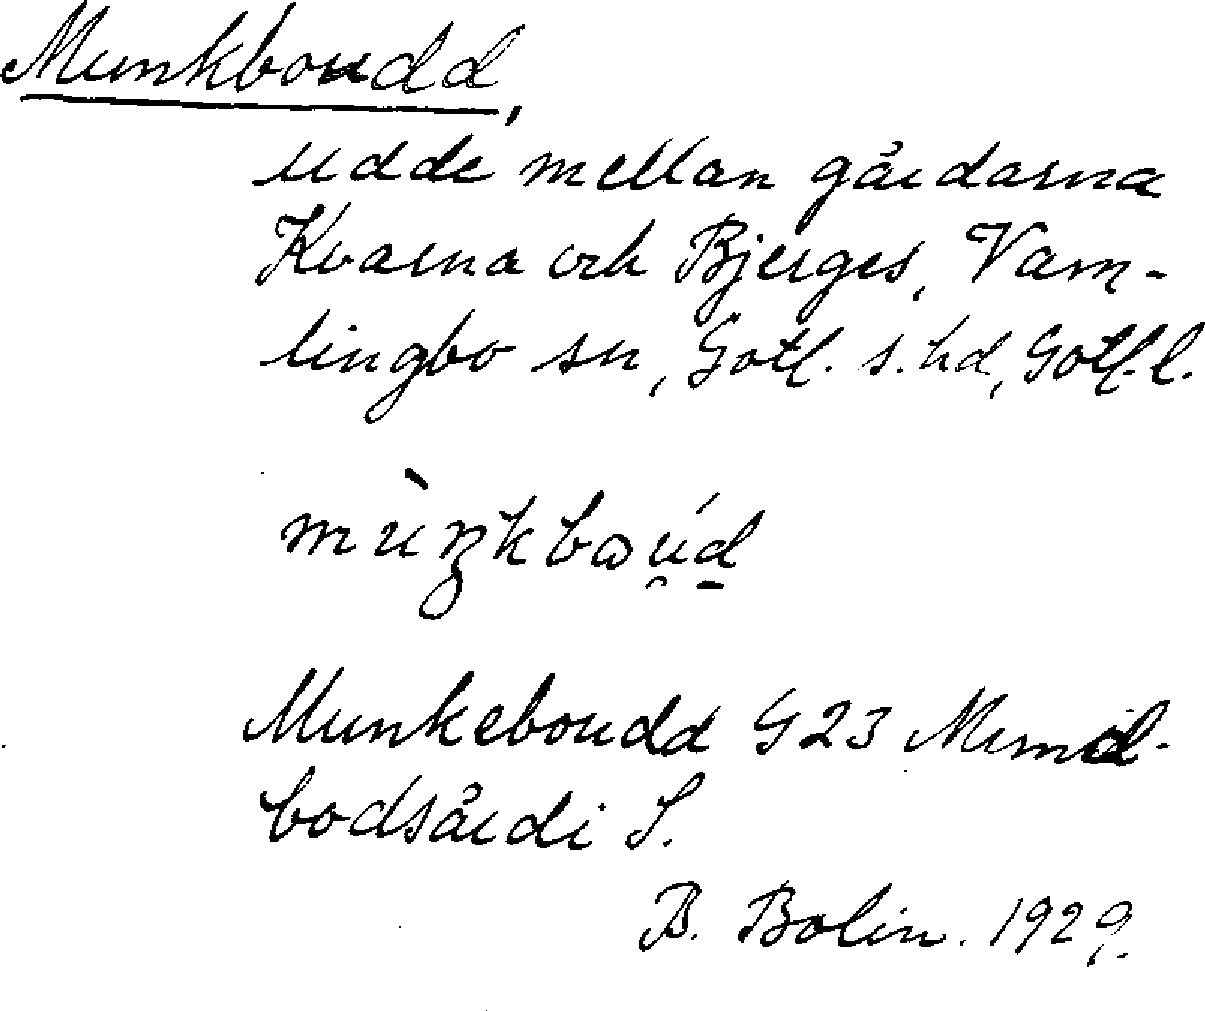 Munkboudd,
udde mellan gårdarna
Kvarna och Bjerges, Vam-
lingbo sn, Gotl. s. hd, Gotl. l.
mùŋkbɷú̯d̲
Munkeboudd G23
bodsårdi S.
B. Bolin. 1929.